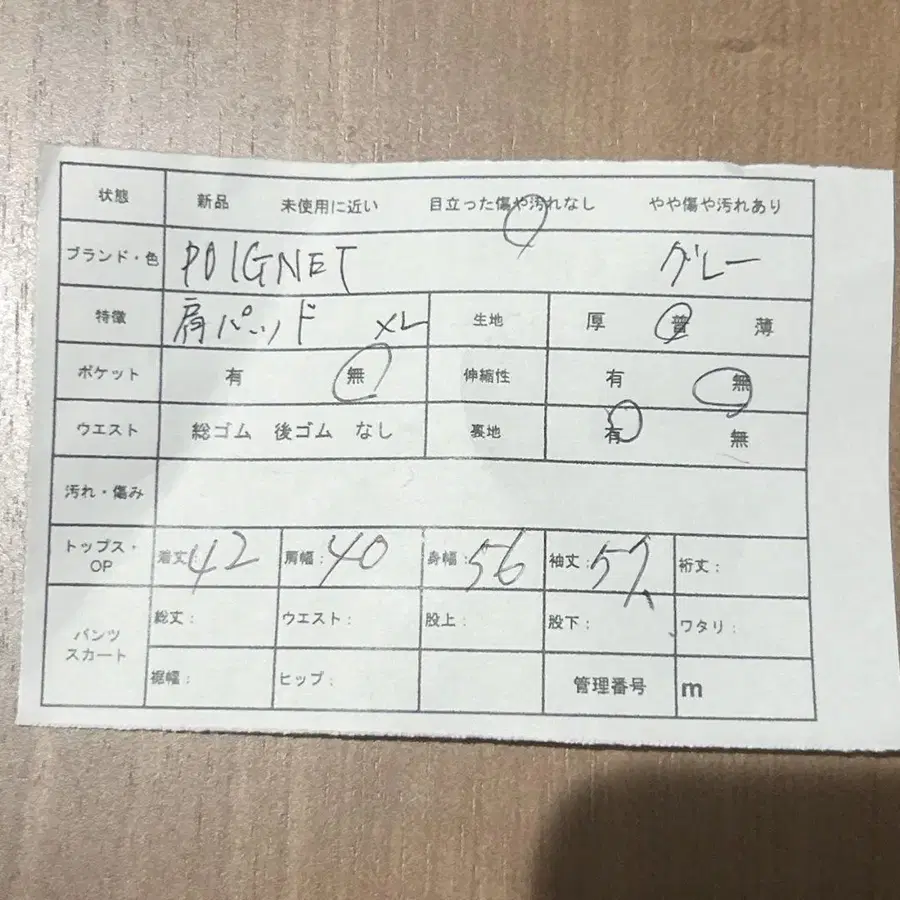 状態 新品 未使用に近い 目立った傷や汚れなし やや傷や汚れあり
ブランド・色 POIGNET グレー
特徴 肩パッド XL 生地 厚 普 薄
ポケット 有 無 伸縮性 有 無
ウエスト 総ゴム 後ゴム なし 裏地 有 無
汚れ・傷み
トップス・OP 着丈 42 肩幅: 40 身幅: 56 袖丈: 57 裄丈:
パンツ スカート 総丈: ウエスト: 股上: 股下: ワタリ:
裾幅: ヒップ: 管理番号 m